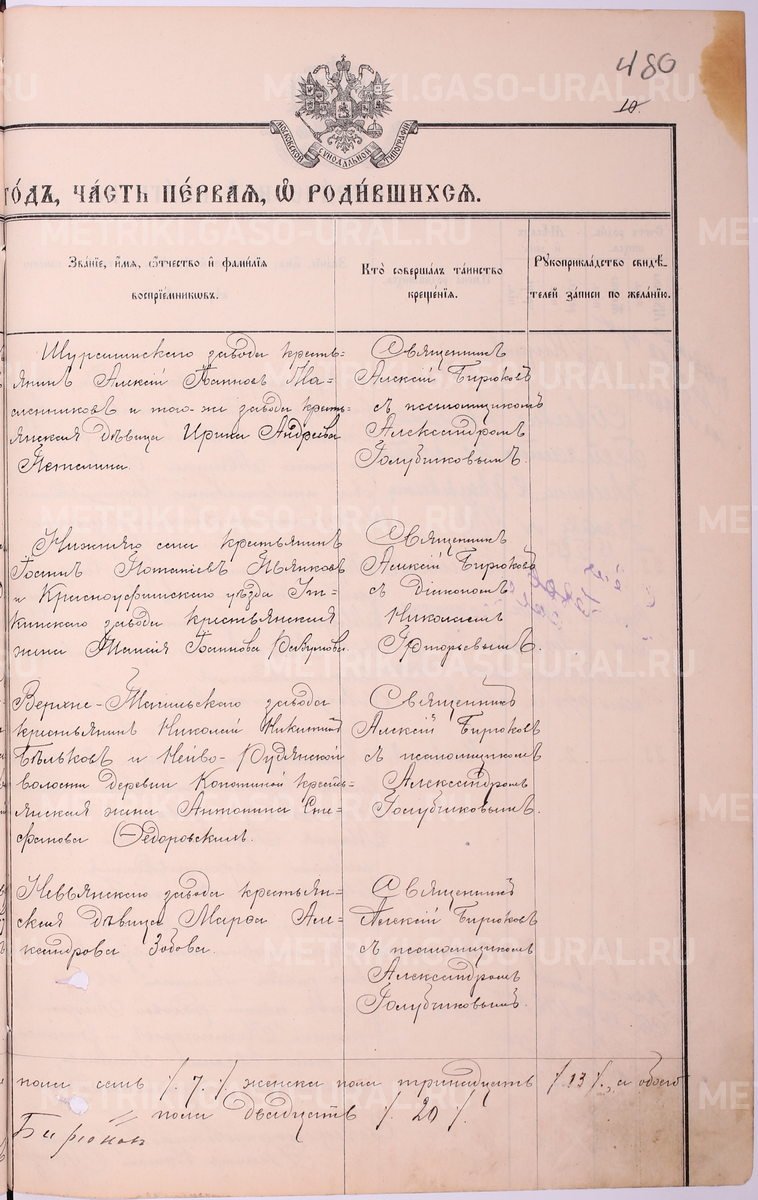 480
10.
МОСКОВСКОЙ СѴНОДАЛЬНОЙ ТИПОГРАФІИ
ГОДЪ, ЧАСТЬ ПЕРВАЯ, Ѿ РОДИВШИХСЯ.
Званіе, имя, ѿчество и фамилія
воспріемниковъ.
Кто совершалъ таинство
крещенія.
Рукоприкладство свидѣ-
телей записи по желанію.
Шуралинскаго завода кресть-
янинъ Алексій Іоанновъ Ма-
сленниковъ и того-же завода кресть-
янская дѣвица Ирина Андреева
Священникъ
Алексій Бирюковъ
съ псаломщикомъ
Александромъ
Голубчиковымъ.
села крестьянинъ
Іоаннъ
и Красноуфимскаго уѣзда Ут-
кинскаго завода крестьянская
жена Іоаннова
Священникъ
Алексій Бирюковъ
съ Діакономъ
Николаемъ
Григорьевымъ.
Верхне-Тагильскаго завода
крестьянинъ Николай Никитинъ
Бѣльковъ и Нейво-Рудянской
волости деревни кресть-
янская жена Антонина Сте-
фанова Ѳедоровскихъ.
Священникъ
Алексій Бирюковъ
съ псаломщикомъ
Александромъ
Голубчиковымъ.
Невьянскаго завода крестьян-
ская дѣвица Марѳа Але-
ксандрова Зобова.
Священникъ
Алексій Бирюковъ
съ псаломщикомъ
Александромъ
Голубчиковымъ.
пола семь /. 7 ./ женска пола тринадцать /. 13 ./, а обоего
пола двадцать /. 20 ./.
Бирюковъ
METRIKI.GASO-URAL.RU